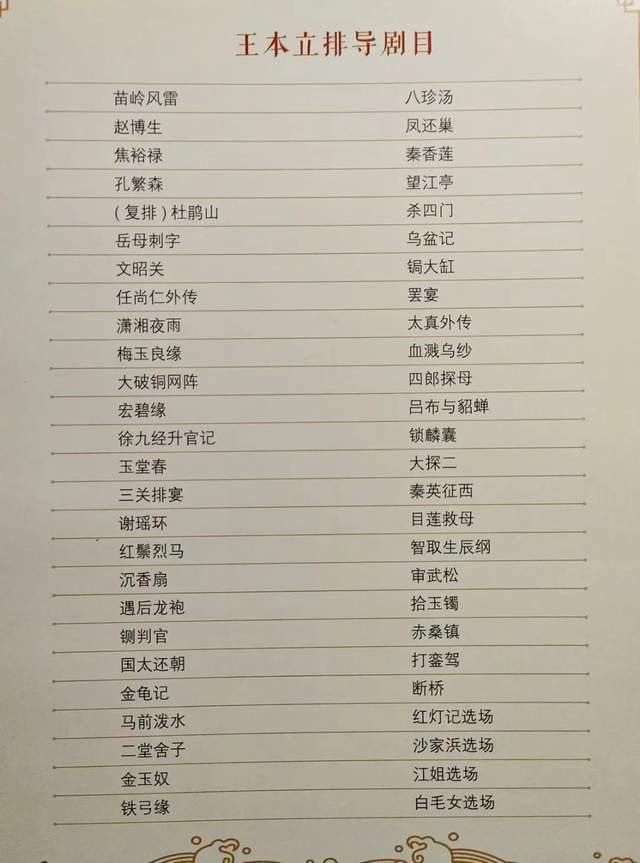 王本立排导剧目
苗岭风雷 八珍汤
赵博生 凤还巢
焦裕禄 秦香莲
孔繁森 望江亭
(复排)杜鹃山 杀四门
岳母刺字 乌盆记
文昭关 锔大缸
任尚仁外传 罢宴
潇湘夜雨 太真外传
梅玉良缘 血溅乌纱
大破铜网阵 四郎探母
宏碧缘 吕布与貂蝉
徐九经升官记 锁麟囊
玉堂春 大探二
三关排宴 秦英征西
谢瑶环 目莲救母
红鬃烈马 智取生辰纲
沉香扇 审武松
遇后龙袍 拾玉镯
铡判官 赤桑镇
国太还朝 打銮驾
金龟记 断桥
马前泼水 红灯记选场
二堂舍子 沙家浜选场
金玉奴 江姐选场
铁弓缘 白毛女选场